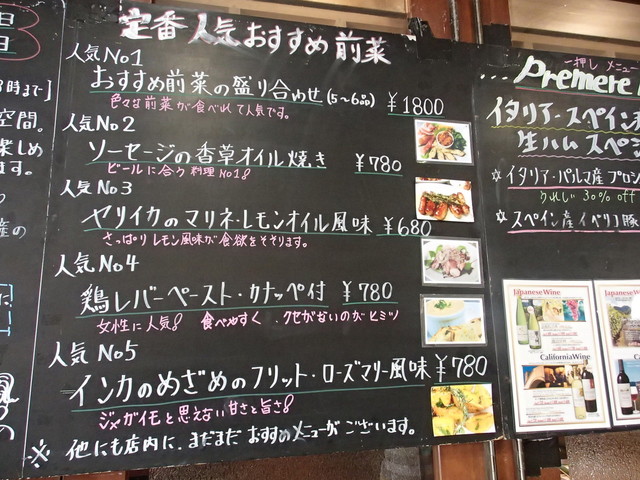 日
日
時まで]
空間。
楽しめ
ます。
産の
の
定番人気おすすめ前菜
人気No1
おすすめ前菜の盛り合わせ(5~6品) ¥1800
色々な前菜が食べれて人気です。
人気No2
ソーセージの香草オイル焼き ¥780
ビールに合う料理No1!
人気No3
ヤリイカのマリネ・レモンオイル風味 ¥680
さっぱりレモン風味が食欲をそそります。
人気No4
鶏レバーペースト・カナッペ付 ¥780
女性に人気! 食べやすく、クセがないのがヒミツ
人気No5
インカのめざめのフリット・ローズマリー風味 ¥780
ジャガイモと思えない甘さと旨さ!
※他にも店内に、まだまだおすすめメニューがございます。
一押しメニュー
...Premere
イタリア・スペイン
生ハムスペシ
☆イタリア・パルマ産プロシ
うれしい30%off
☆スペイン産イベリコ豚
Japanese Wine
California Wine
Japanese Wine